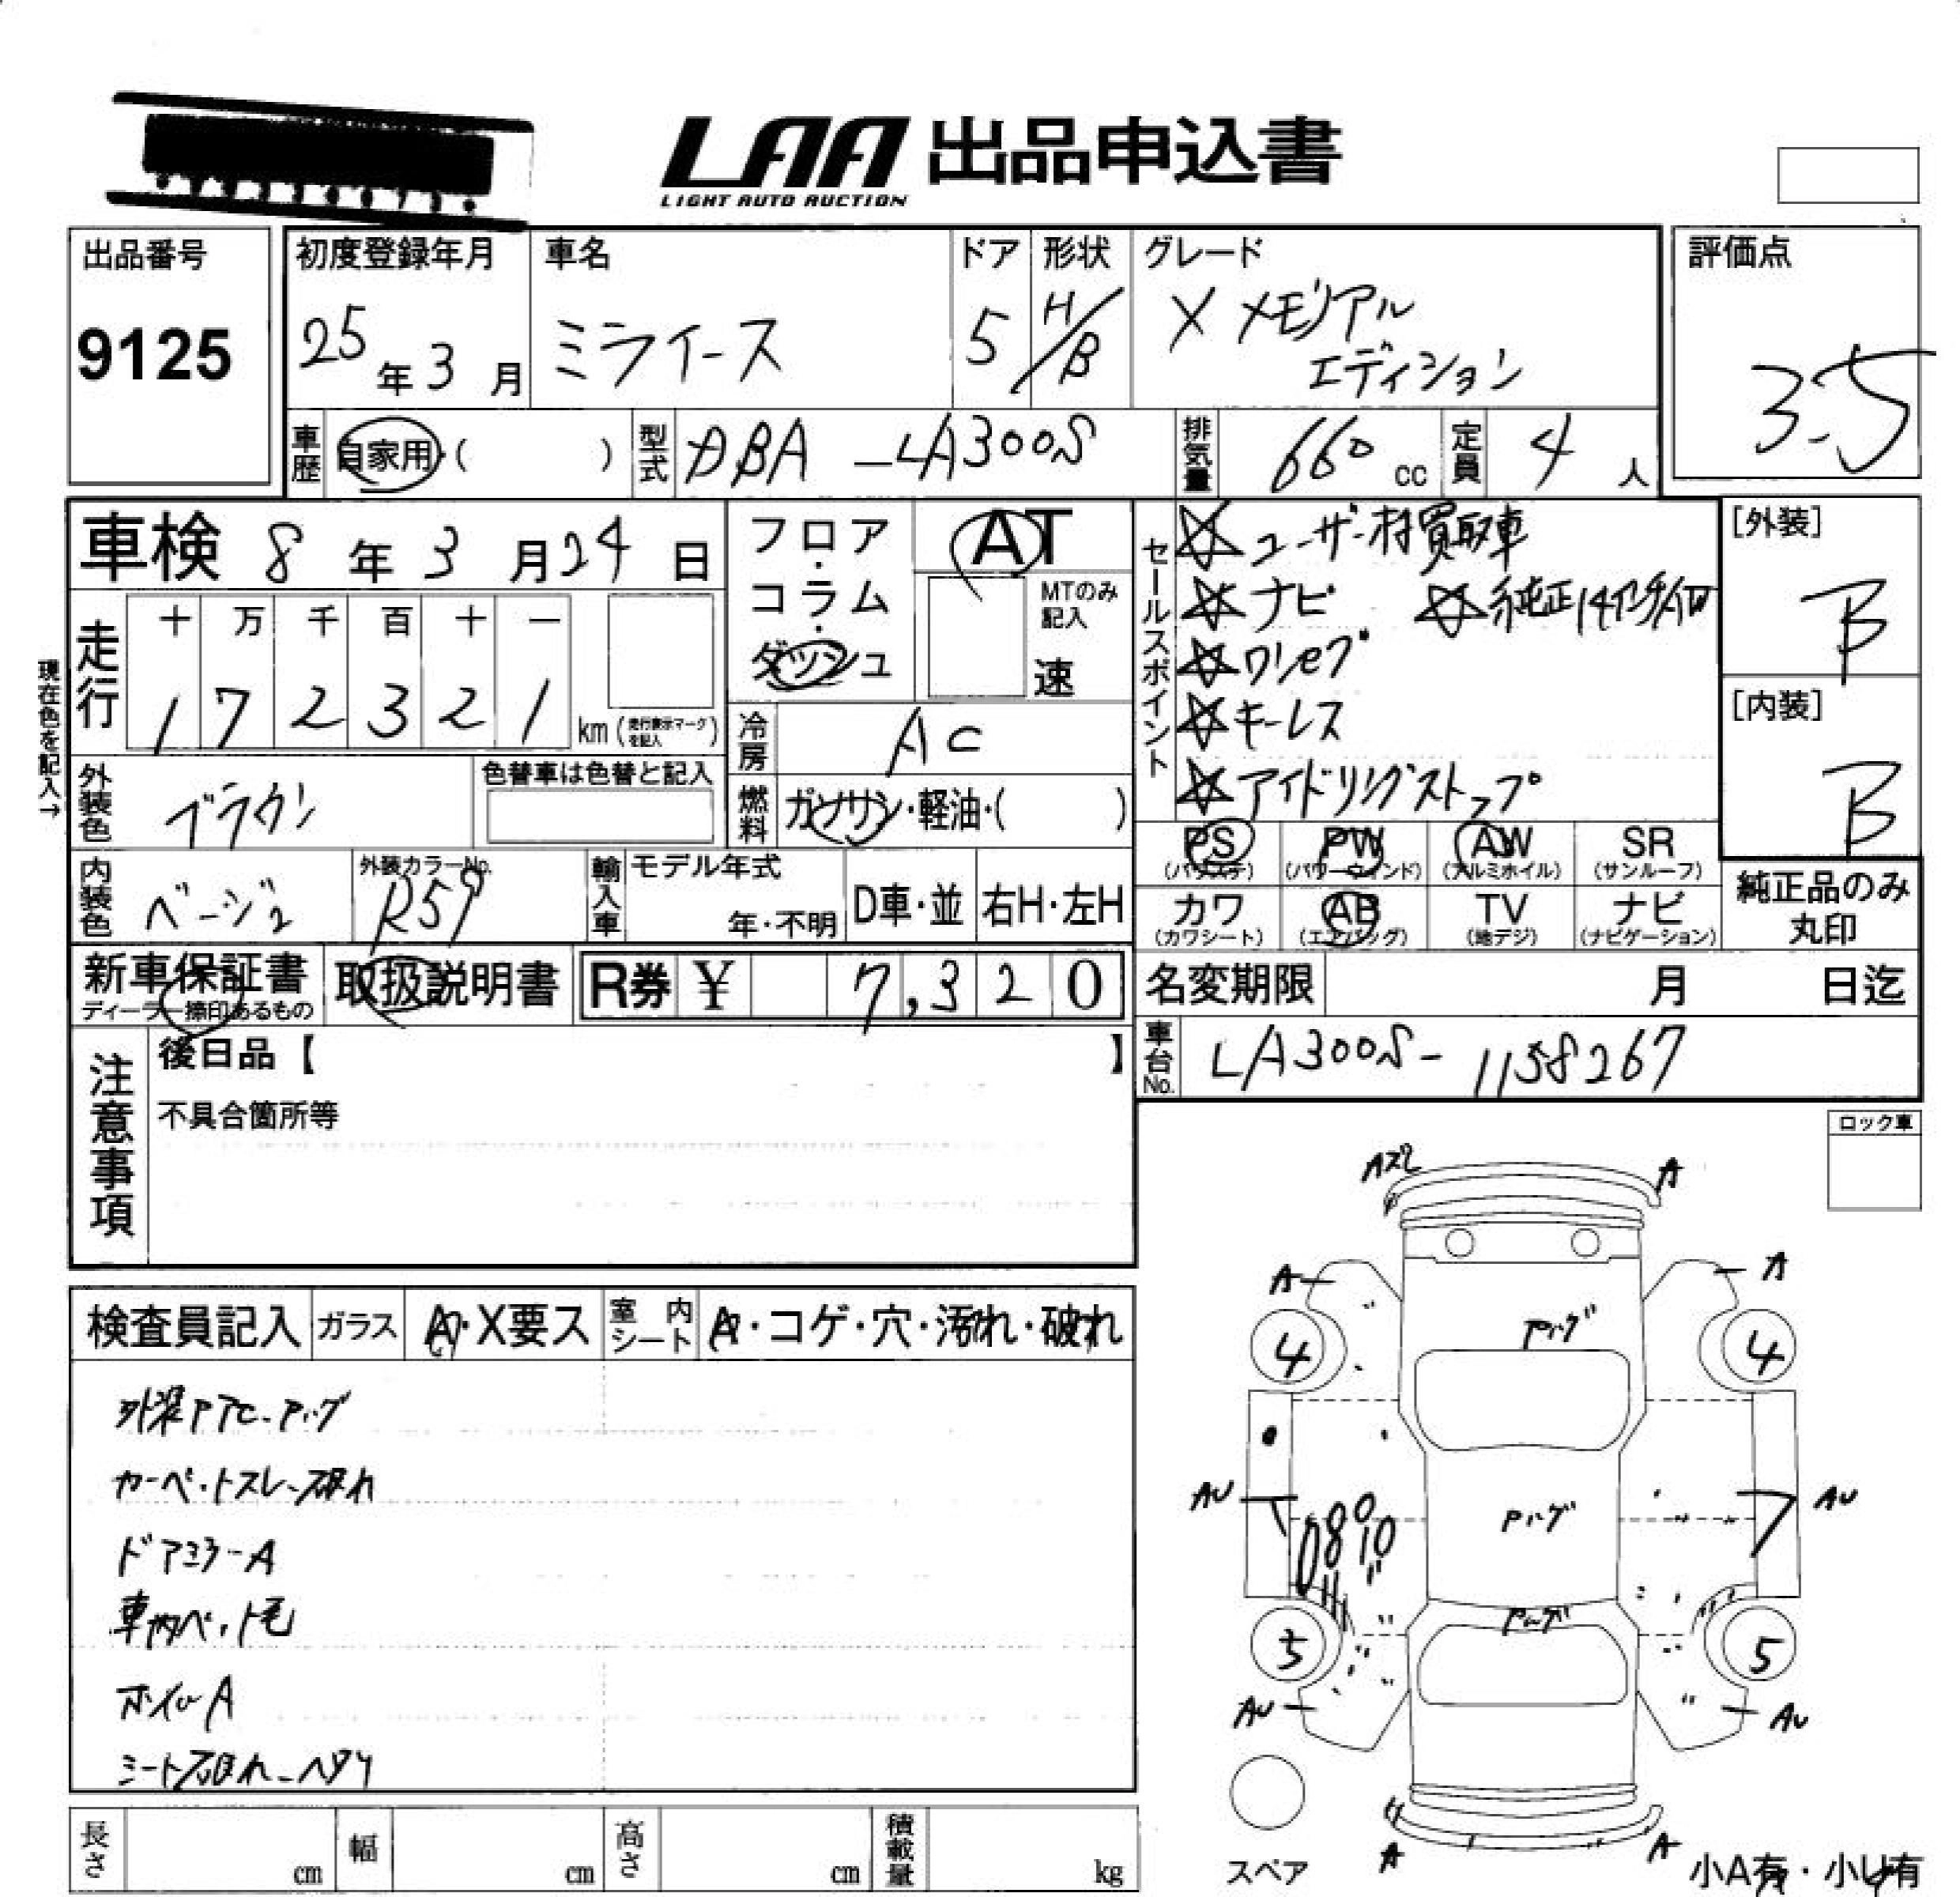 LAA 出品申込書
LIGHT AUTO AUCTION
出品番号
9125
初度登録年月
25年3月
車名
ミライース
ドア
5
形状
H/B
グレード
X メモリアル
エディション
評価点
3.5
車歴
自家用・( )
型式
DBA-LA300S
排気量
660 cc
定員
4 人
車検 8年3月24日
フロア・コラム・ダッシュ
AT
MTのみ記入
速
セールスポイント
☆ユーザー様買取車
☆ナビ ☆純正14インチAW
☆ワンセグ
☆キーレス
☆アイドリングストップ
[外装]
B
[内装]
B
現在色を記入→
走行
十 万 千 百 十 一
1 7 2 3 2 1 km (走行表示マークを記入)
冷房
AC
外装色
ブラウン
色替車は色替と記入
燃料
ガソリン・軽油・( )
PS (パワステ)
PW (パワーウインド)
AW (アルミホイル)
SR (サンルーフ)
カワ (カワシート)
AB (エアバッグ)
TV (地デジ)
ナビ (ナビゲーション)
純正品のみ丸印
内装色
ベージュ
外装カラーNo.
R59
輸入車
モデル年式
年・不明
D車・並
右H・左H
新車保証書
ディーラー捺印あるもの
取扱説明書
R券 ¥ 7,320
名変期限 月 日迄
車台No.
LA300S-1158267
注意事項
後日品【 】
不具合箇所等
ロック車
検査員記入
ガラス
A・X要ス
室内シート
A・コゲ・穴・汚れ・破れ
カーペットスレ-破れ
ドアミラーA
車内ペット毛
ホイルA
シート破れ-ヘタリ
Aスレ
A
A
A
4
4
AU
AU
3
5
AU
AU
A
A
スペア
小A有・小U有
長さ cm
幅 cm
高さ cm
積載量 kg